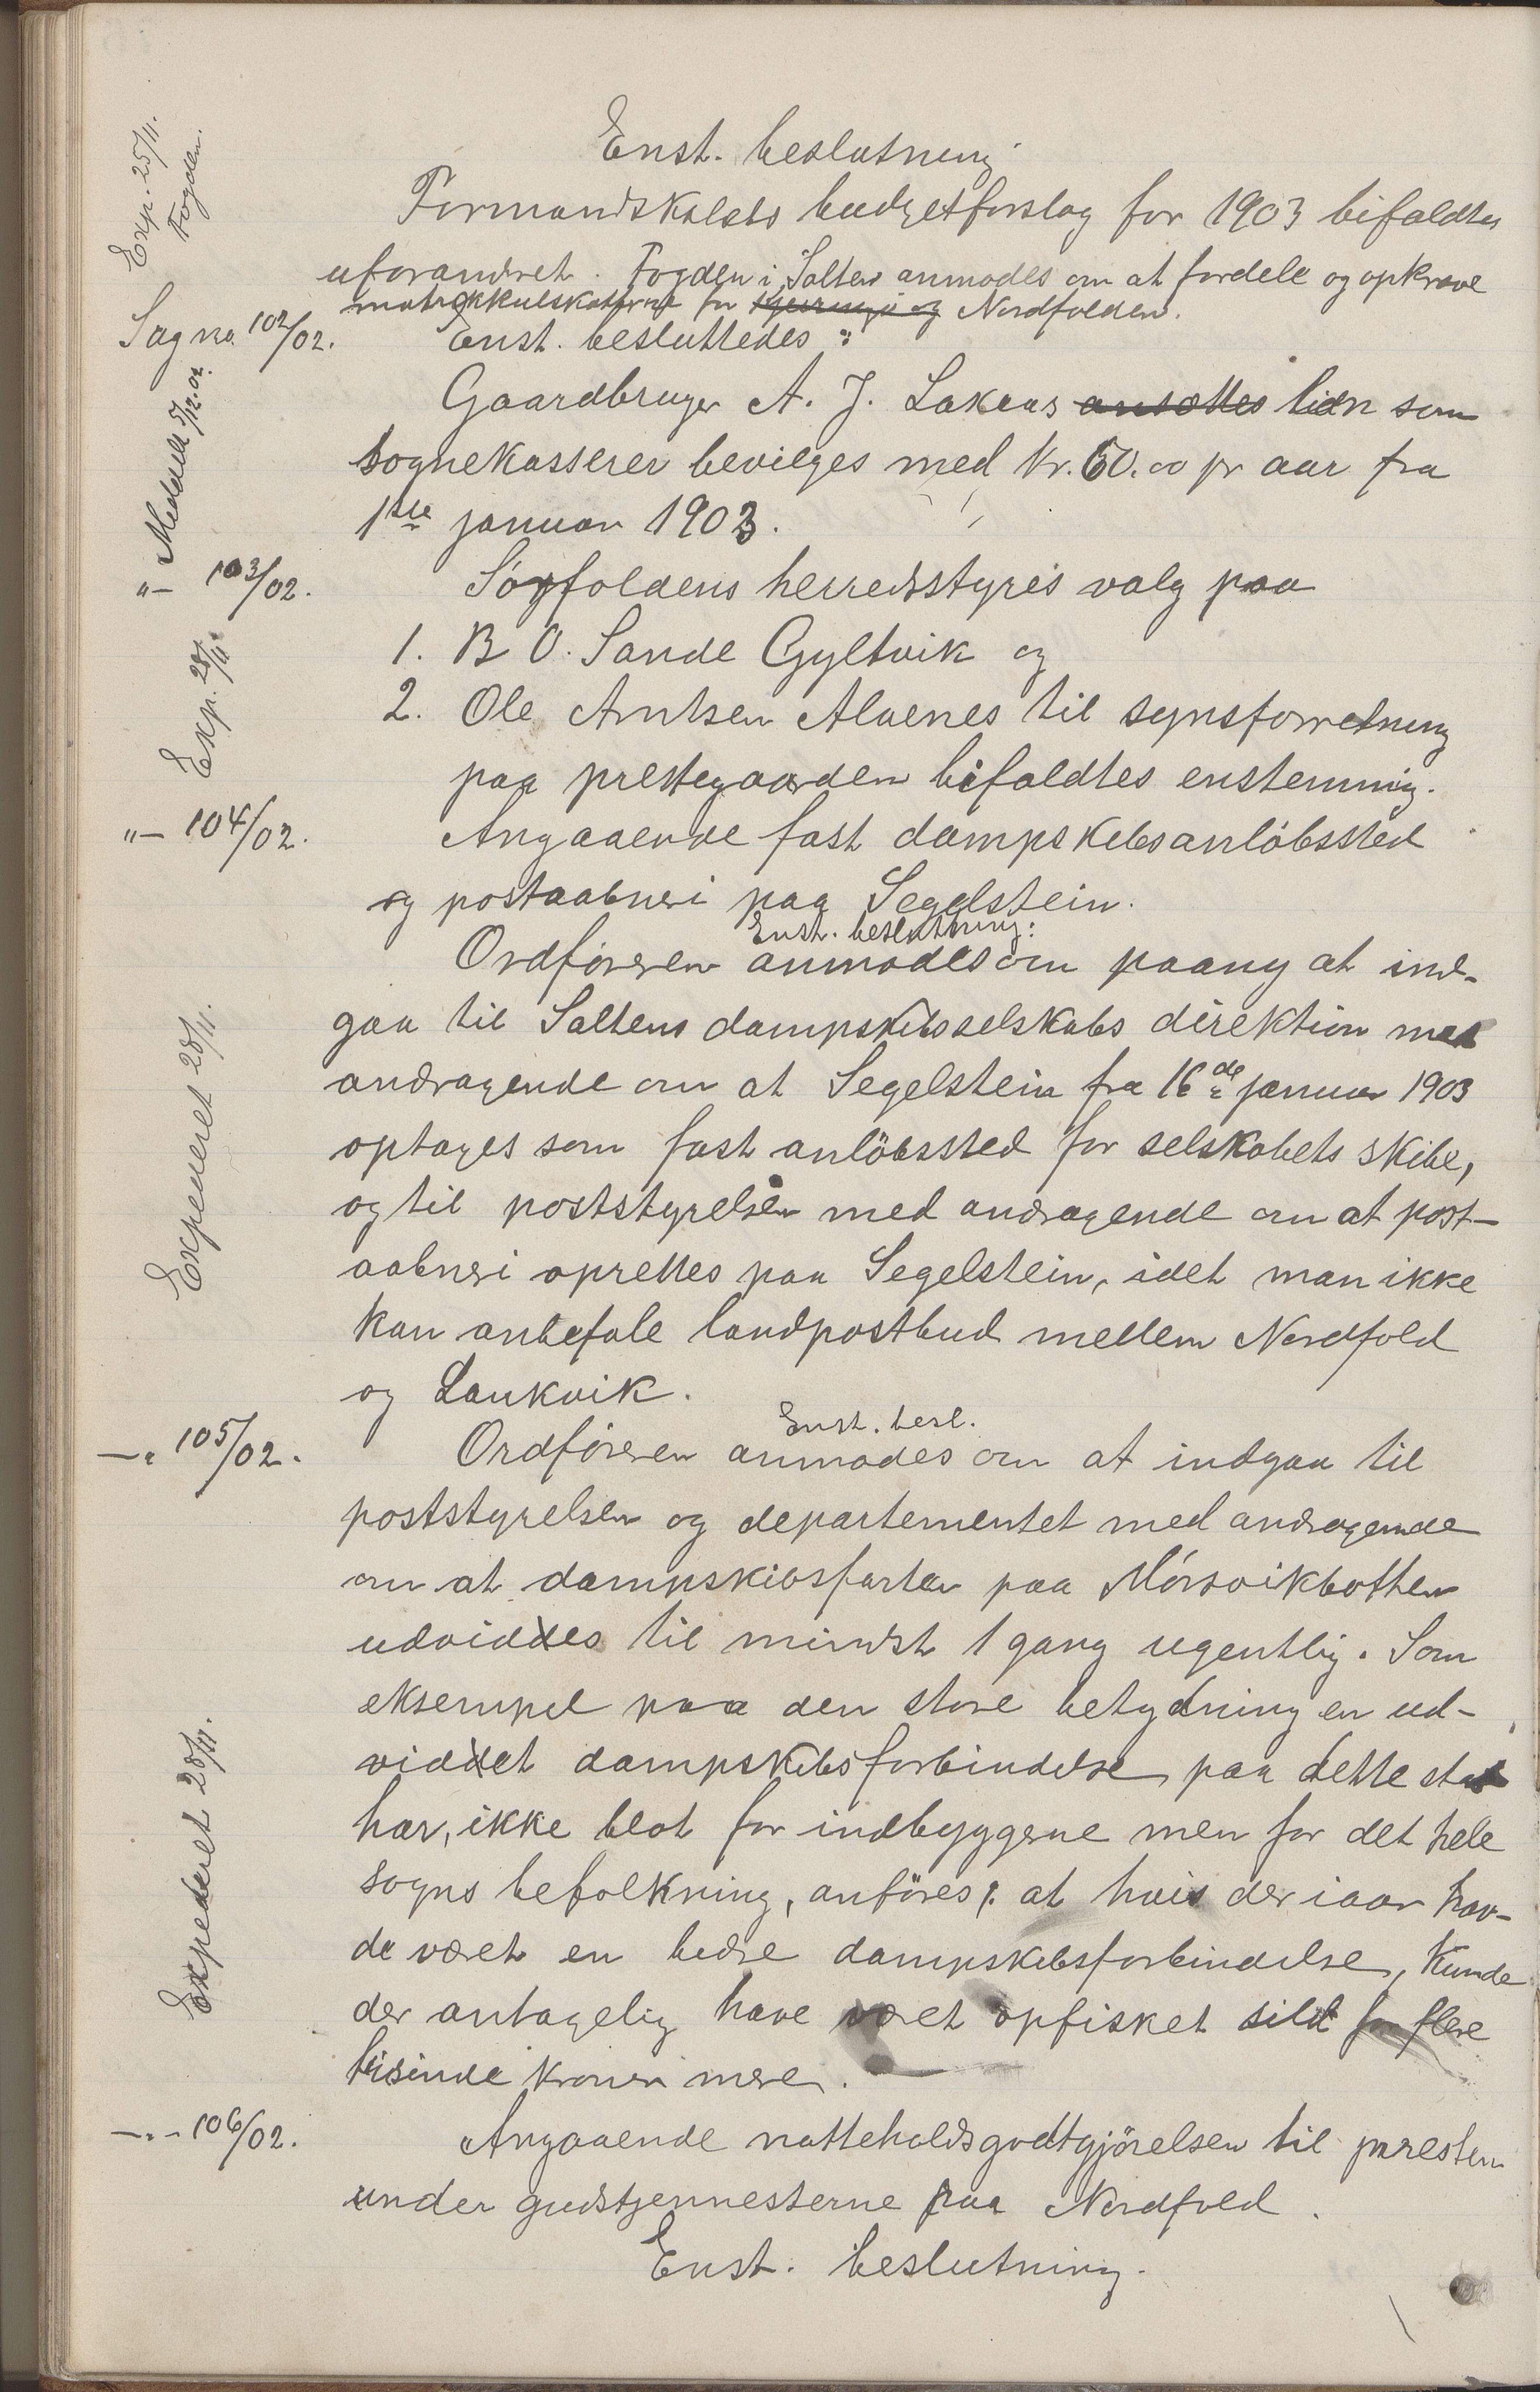 Enst. beslutning
Exp. 25/11.
Fogden.
Formandskabets budgetforslag for 1903 bifaldtes
uforandret. Fogden i Salten anmodes om at fordele og opkræve
matrikkulskatterne for Kjerringø og Nordfolden.
Sag no. 102/02.
Enst. besluttedes:
Meddelt 5/12.02.
Gaardbruger A. J. Lakaas ansættes lön som
sognekasserer bevilges med kr. 60.00 pr aar fra
1ste januar 1903.
"- 103/02.
Sörfoldens herredsstyres valg paa
Exp. 28/11.
1. B O. Sande Gyltvik og
2. Ole Arntsen Alvenes til synsforretning
paa prestegaarden bifaldtes enstemmig.
"- 104/02.
Angaaende fast dampskibsanlöbssted
og postaabneri paa Segelstein.
Enst. beslutning:
Expederet 28/11.
Ordföreren anmodes om paany at ind-
gaa til Saltens dampskibsselskabs direktion med
andragende om at Segelstein fra 16de januar 1903
optages som fast anlöbssted for selskabets skibe,
og til poststyrelsen med andragende om at post-
aabneri oprettes paa Segelstein, idet man ikke
kan anbefale landpostbud mellem Nordfold
og Lankvik.
Enst. besl.
-"- 105/02.
Expederet 28/11.
Ordföreren anmodes om at indgaa til
poststyrelsen og departementet med andragende
om at dampskibsfarten paa Mörsvikbotten
udvides til mindst 1 gang ugentlig. Som
eksempel paa den store betydning en ud-
videt dampskibsforbindelse paa dette sted
har, ikke blot for indbyggerne men for det hele
sogns befolkning, anföres: at hvis der iaar hav-
de været en bedre dampskibsforbindelse, kunde
der antagelig have været opfisket sild for flere
tusinde kroner mere.
-"- 106/02.
Angaaende natteholdsgodtgjörelsen til presten
under gudstjennesterne paa Nordfold.
Enst. beslutning.